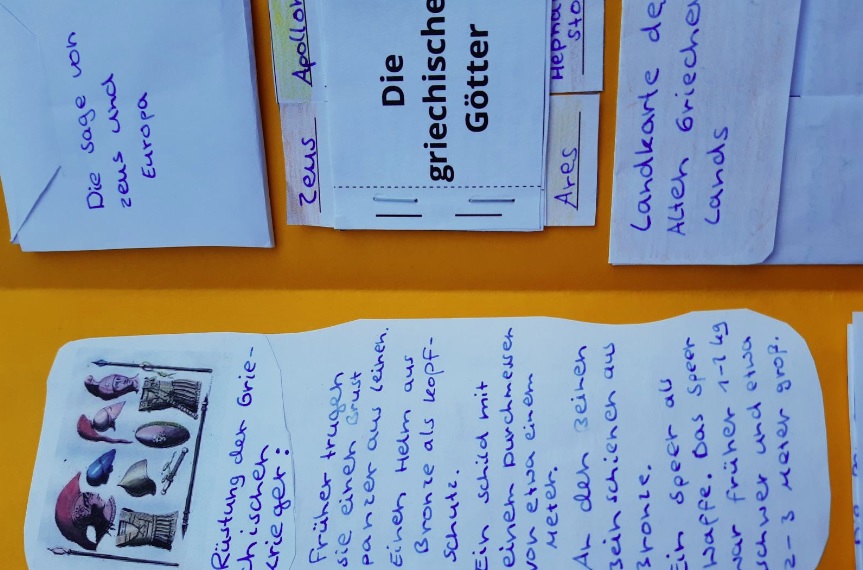 Die Sage von
Zeus und
Europa
Apollon
Zeus
Die
griechische
Götter
Hephä
sto
Ares
Landkarte de
Alten Grieche
Lands
Rüstung der Grie-
chischen
Krieger:
Früher trugen
sie einen Brust
panzer aus Leinen.
Einen Helm aus
Bronze als Kopf-
schutz.
Ein Schild mit
einen Durchmesser
von etwa einem
Meter.
An den Beinen
Beinschienen aus
Bronze.
Ein Speer als
Waffe. Das Speer
war früher 1-2 kg
schwer und etwa
2-3 Meter groß.